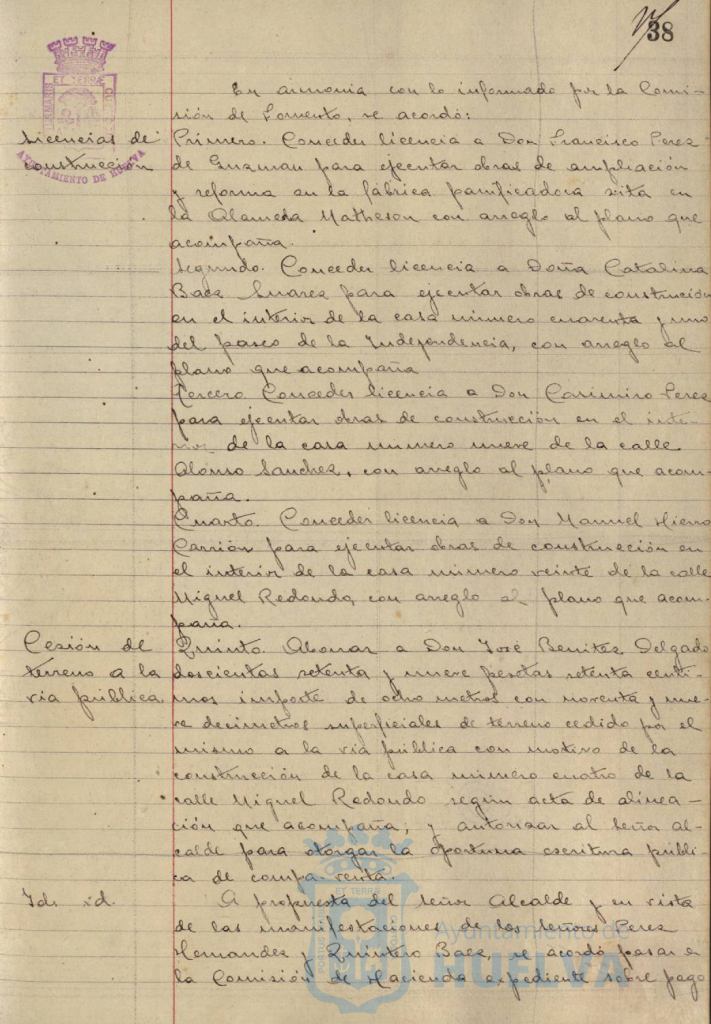 38
En armonia con lo informado por la Comi-
sión de Fomento, se acordó:
Licencias de
construccion
AYUNTAMIENTO DE HUELVA
Primero. Conceder licencia a Don Francisco Perez
de Guzman para ejecutar obras de ampliación
y reforma en la fábrica panificadora sita en
la Alameda Matheson con arreglo al plano que
acompaña.
Segundo. Conceder licencia a Doña Catalina
Baez Suarez para ejecutar obras de construcción
en el interior de la casa numero cuarenta y uno
del paseo de la Independencia, con arreglo al
plano que acompaña
Tercero Conceder licencia a Don Casimiro Perez
para ejecutar obras de construcción en el inte-
rior de la casa numero nueve de la calle
Alonso Sanchez, con arreglo al plano que acom-
paña.
Cuarto. Conceder licencia a Don Manuel Hierro
Carrión para ejecutar obras de construcción en
el interior de la casa numero veinte de la calle
Miguel Redondo, con arreglo al plano que acom-
paña.
Cesión de
terreno a la
via pública.
Quinto. Abonar a Don José Benitez Delgado
doscientas setenta y nueve pesetas setenta centi-
mos importe de ocho metros con noventa y nue-
ve decimetros superficiales de terreno cedido por el
mismo a la via pública con motivo de la
construcción de la casa numero cuatro de la
calle Miguel Redondo según acta de alinea-
ción que acompaña, y autorizar al Señor al-
calde para otorgar la oportuna escritura públi-
ca de compa-venta.
Id. id.
A propuesta del Señor Alcalde y en vista
de las manifestaciones de los Señores Perez
Hernandez y Quintero Baez, se acordó pasar a
la Comisión de Hacienda expediente sobre pago
Ayuntamiento de
HUELVA